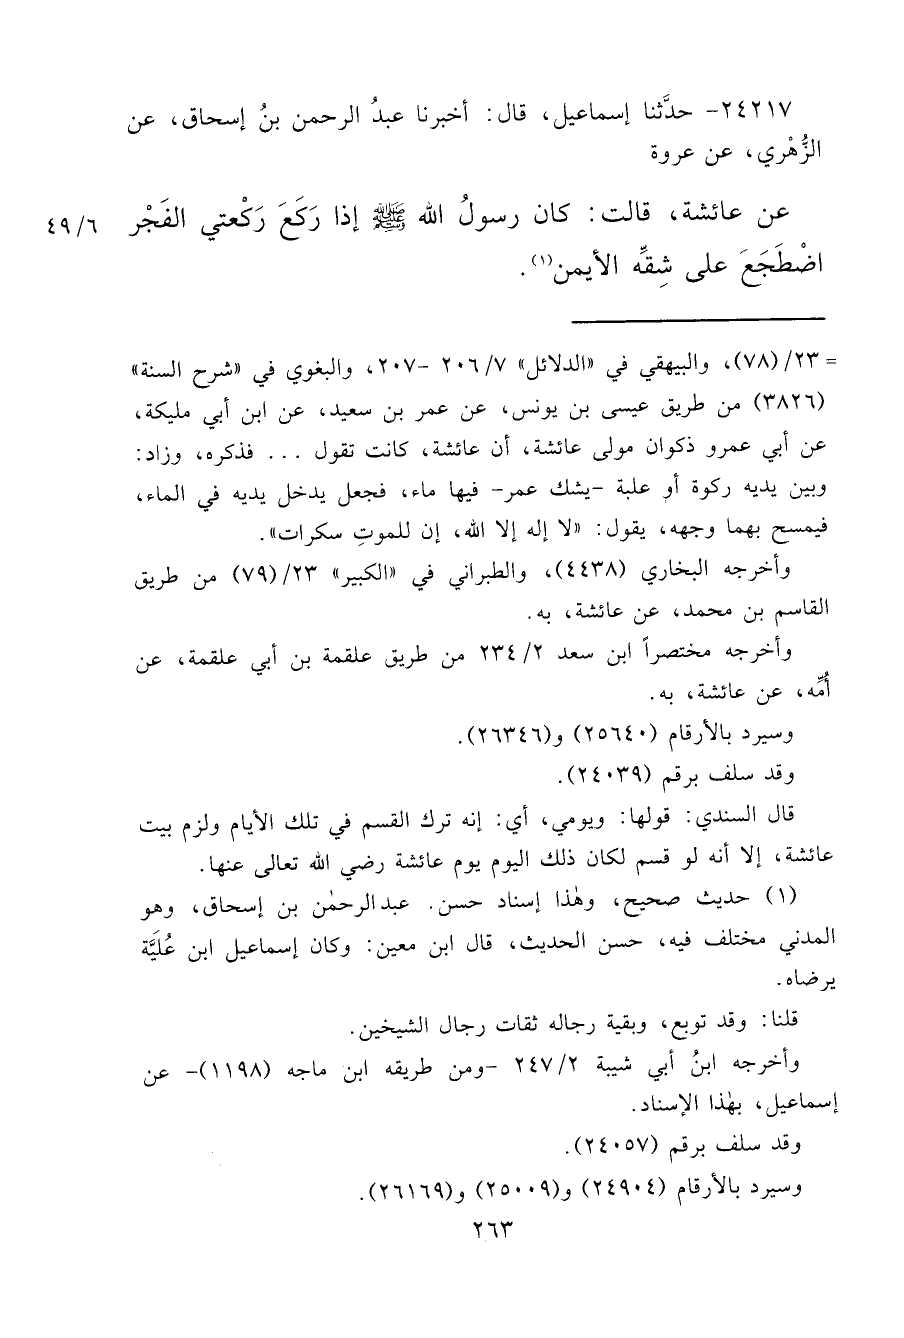 ٢٤٢١٧- حدَّثنا إسماعيل، قال: أخبرنا عبدُ الرحمن بنُ إسحاق، عن
الزُّهْري، عن عروة
عن عائشة، قالت: كان رسولُ الله ﷺ إذا رَكَعَ رَكْعتي الفَجْر ٤٩/٦
اضْطَجَعَ على شِقِّه الأيمن(١).
= ٢٣/(٧٨)، والبيهقي في «الدلائل» ٢٠٦/٧ -٢٠٧، والبغوي في «شرح السنة»
(٣٨٢٦) من طريق عيسى بن يونس، عن عمر بن سعيد، عن ابن أبي مليكة،
عن أبي عمرو ذكوان مولى عائشة، أن عائشة، كانت تقول ... فذكره، وزاد:
وبين يديه ركوة أو علبة -يشك عمر- فيها ماء، فجعل يدخل يديه في الماء،
فيمسح بهما وجهه، يقول: «لا إله إلا الله، إن للموتِ سكرات».
وأخرجه البخاري (٤٤٣٨)، والطبراني في «الكبير» ٢٣/(٧٩) من طريق
القاسم بن محمد، عن عائشة، به.
وأخرجه مختصراً ابن سعد ٢٣٤/٢ من طريق علقمة بن أبي علقمة، عن
أُمِّه، عن عائشة، به.
وسيرد بالأرقام (٢٥٦٤٠) و(٢٦٣٤٦).
وقد سلف برقم (٢٤٠٣٩).
قال السندي: قولها: ويومي، أي: إنه ترك القسم في تلك الأيام ولزم بيت
عائشة، إلا أنه لو قسم لكان ذلك اليوم يوم عائشة رضي الله تعالى عنها.
(١) حديث صحيح، وهٰذا إسناد حسن. عبدالرحمٰن بن إسحاق، وهو
المدني مختلف فيه، حسن الحديث، قال ابن معين: وكان إسماعيل ابن عُليَّة
يرضاه.
قلنا: وقد توبع، وبقية رجاله ثقات رجال الشيخين.
وأخرجه ابنُ أبي شيبة ٢٤٧/٢ -ومن طريقه ابن ماجه (١١٩٨)- عن
إسماعيل، بهٰذا الإسناد.
وقد سلف برقم (٢٤٠٥٧).
وسيرد بالأرقام (٢٤٩٠٤) و(٢٥٠٠٩) و(٢٦١٦٩).
٢٦٣